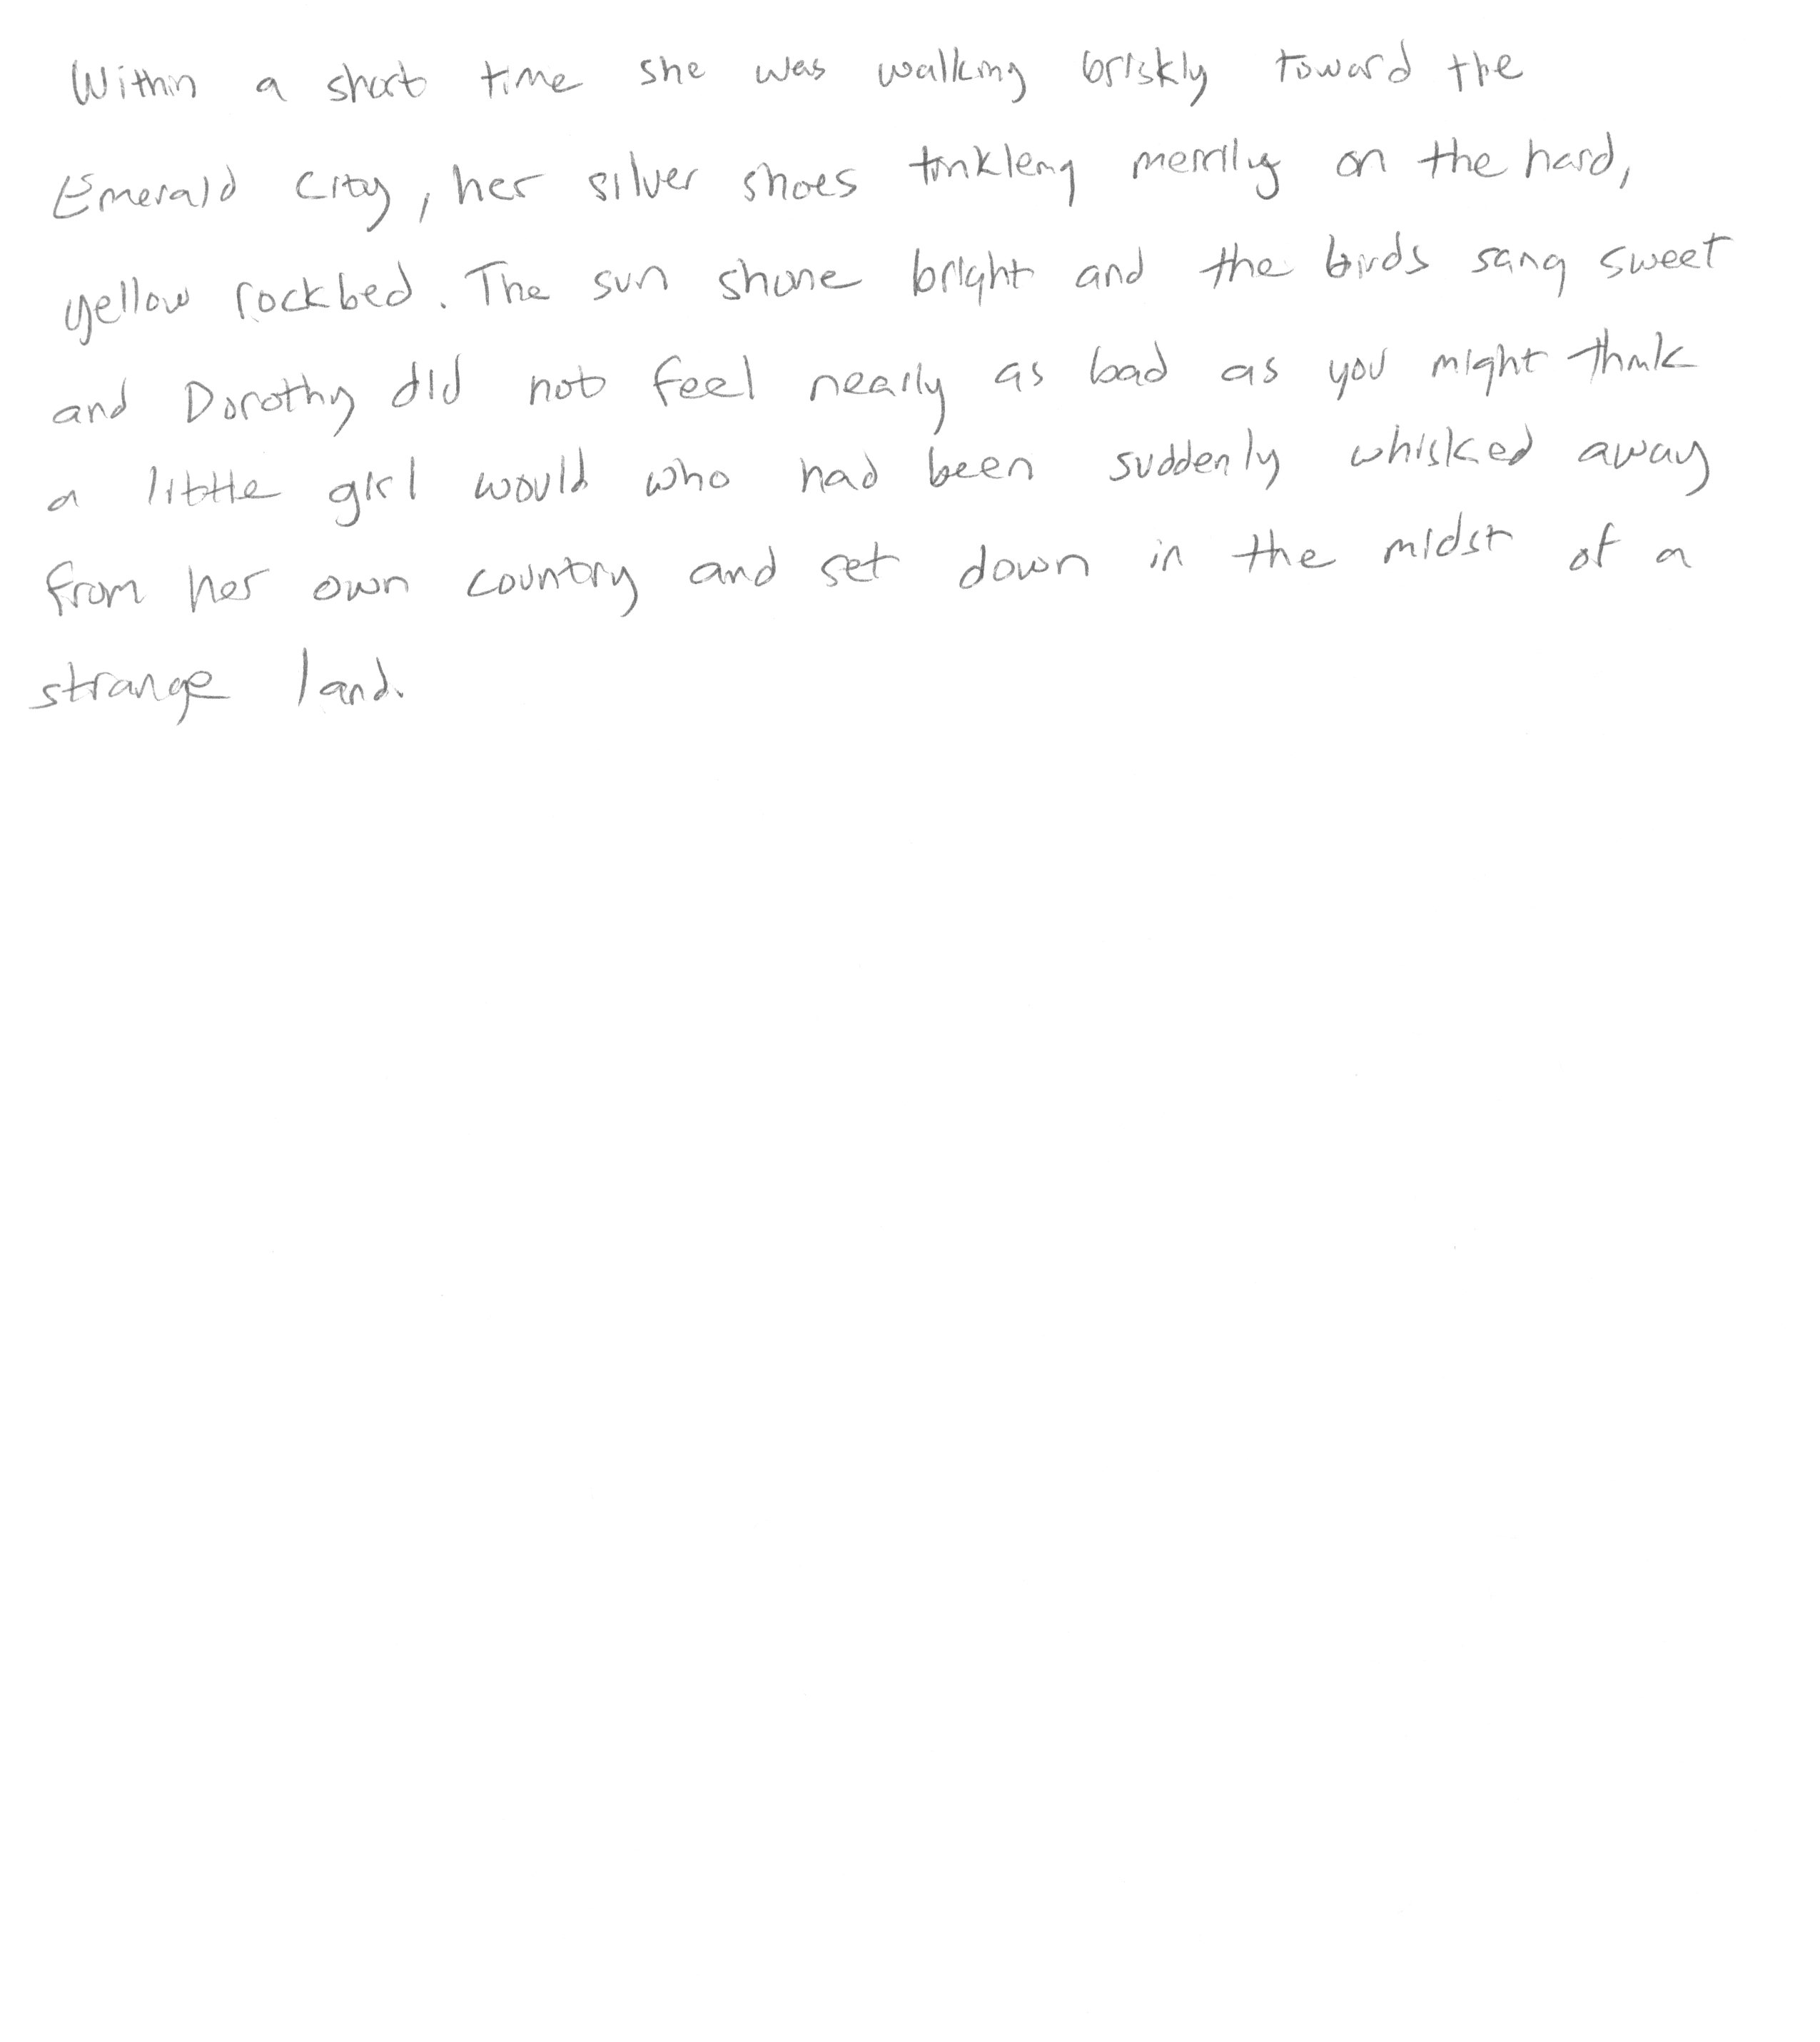 Within a short time she was walking briskly toward the
Emerald City, her silver shoes tinkleng merrily on the hard,
yellow rockbed. The sun shone bright and the birds sang sweet
and Dorothy did not feel nearly as bad as you might think
a little girl would who had been suddenly whisked away
from her own country and set down in the midst of a
strange land.